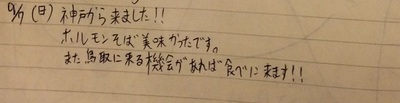 (日) 神戸から来ました!!
ホルモンそば美味かったです。
また鳥取に来る機会があれば食べに来ます!!